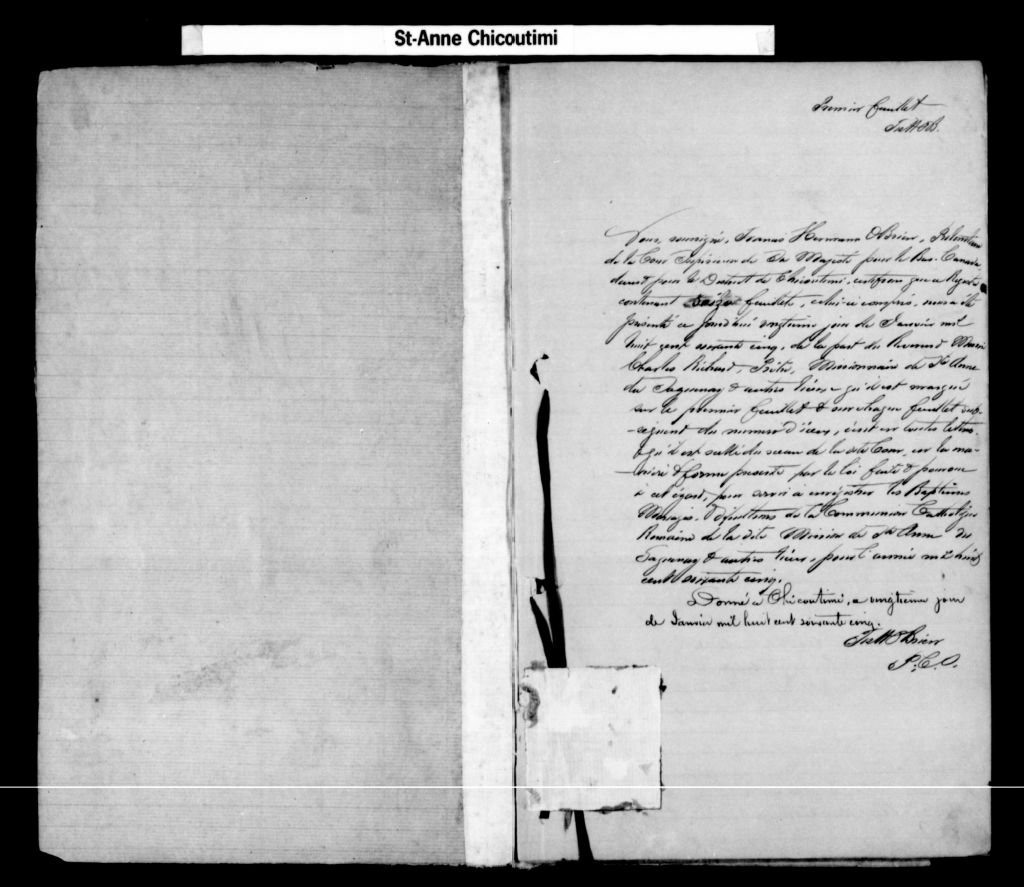 St-Anne Chicoutimi
Premier feuillet
Nous, soussigné, Hermann OBrien, Protonotaire
de la Cour Supérieure de Sa Majesté pour le Bas-Canada
dans et pour le District de Chicoutimi, certifions que ce Registre
contenant seize feuillets, celui-ci compris, nous a été
présenté ce jourd'hui vingtième jour de Janvier mil
huit cent soixante cinq, de la part du Révérend Messire
Charles Richard, Prêtre, Missionnaire de Ste Anne
du Saguenay & autres lieux, qu'il est marqué
sur le premier feuillet & sur chaque feuillet sub-
-séquent du numero d'iceux, écrit en toutes lettres
& qu'il est scellé du sceau de la dite Cour, en la ma-
-nière & forme prescrite par la loi faite & pourvue
à cet égard, pour servir à enrégistrer les Baptêmes
Mariages, Sépultures de la Communion Catholique
Romaine de la dite Mission de Ste Anne du
Saguenay & autres lieux, pour l'année mil huit
cent soixante cinq.
Donné à Chicoutimi, ce vingtième jour
de Janvier mil huit cent soixante cinq.
OBrien
P.C.S.